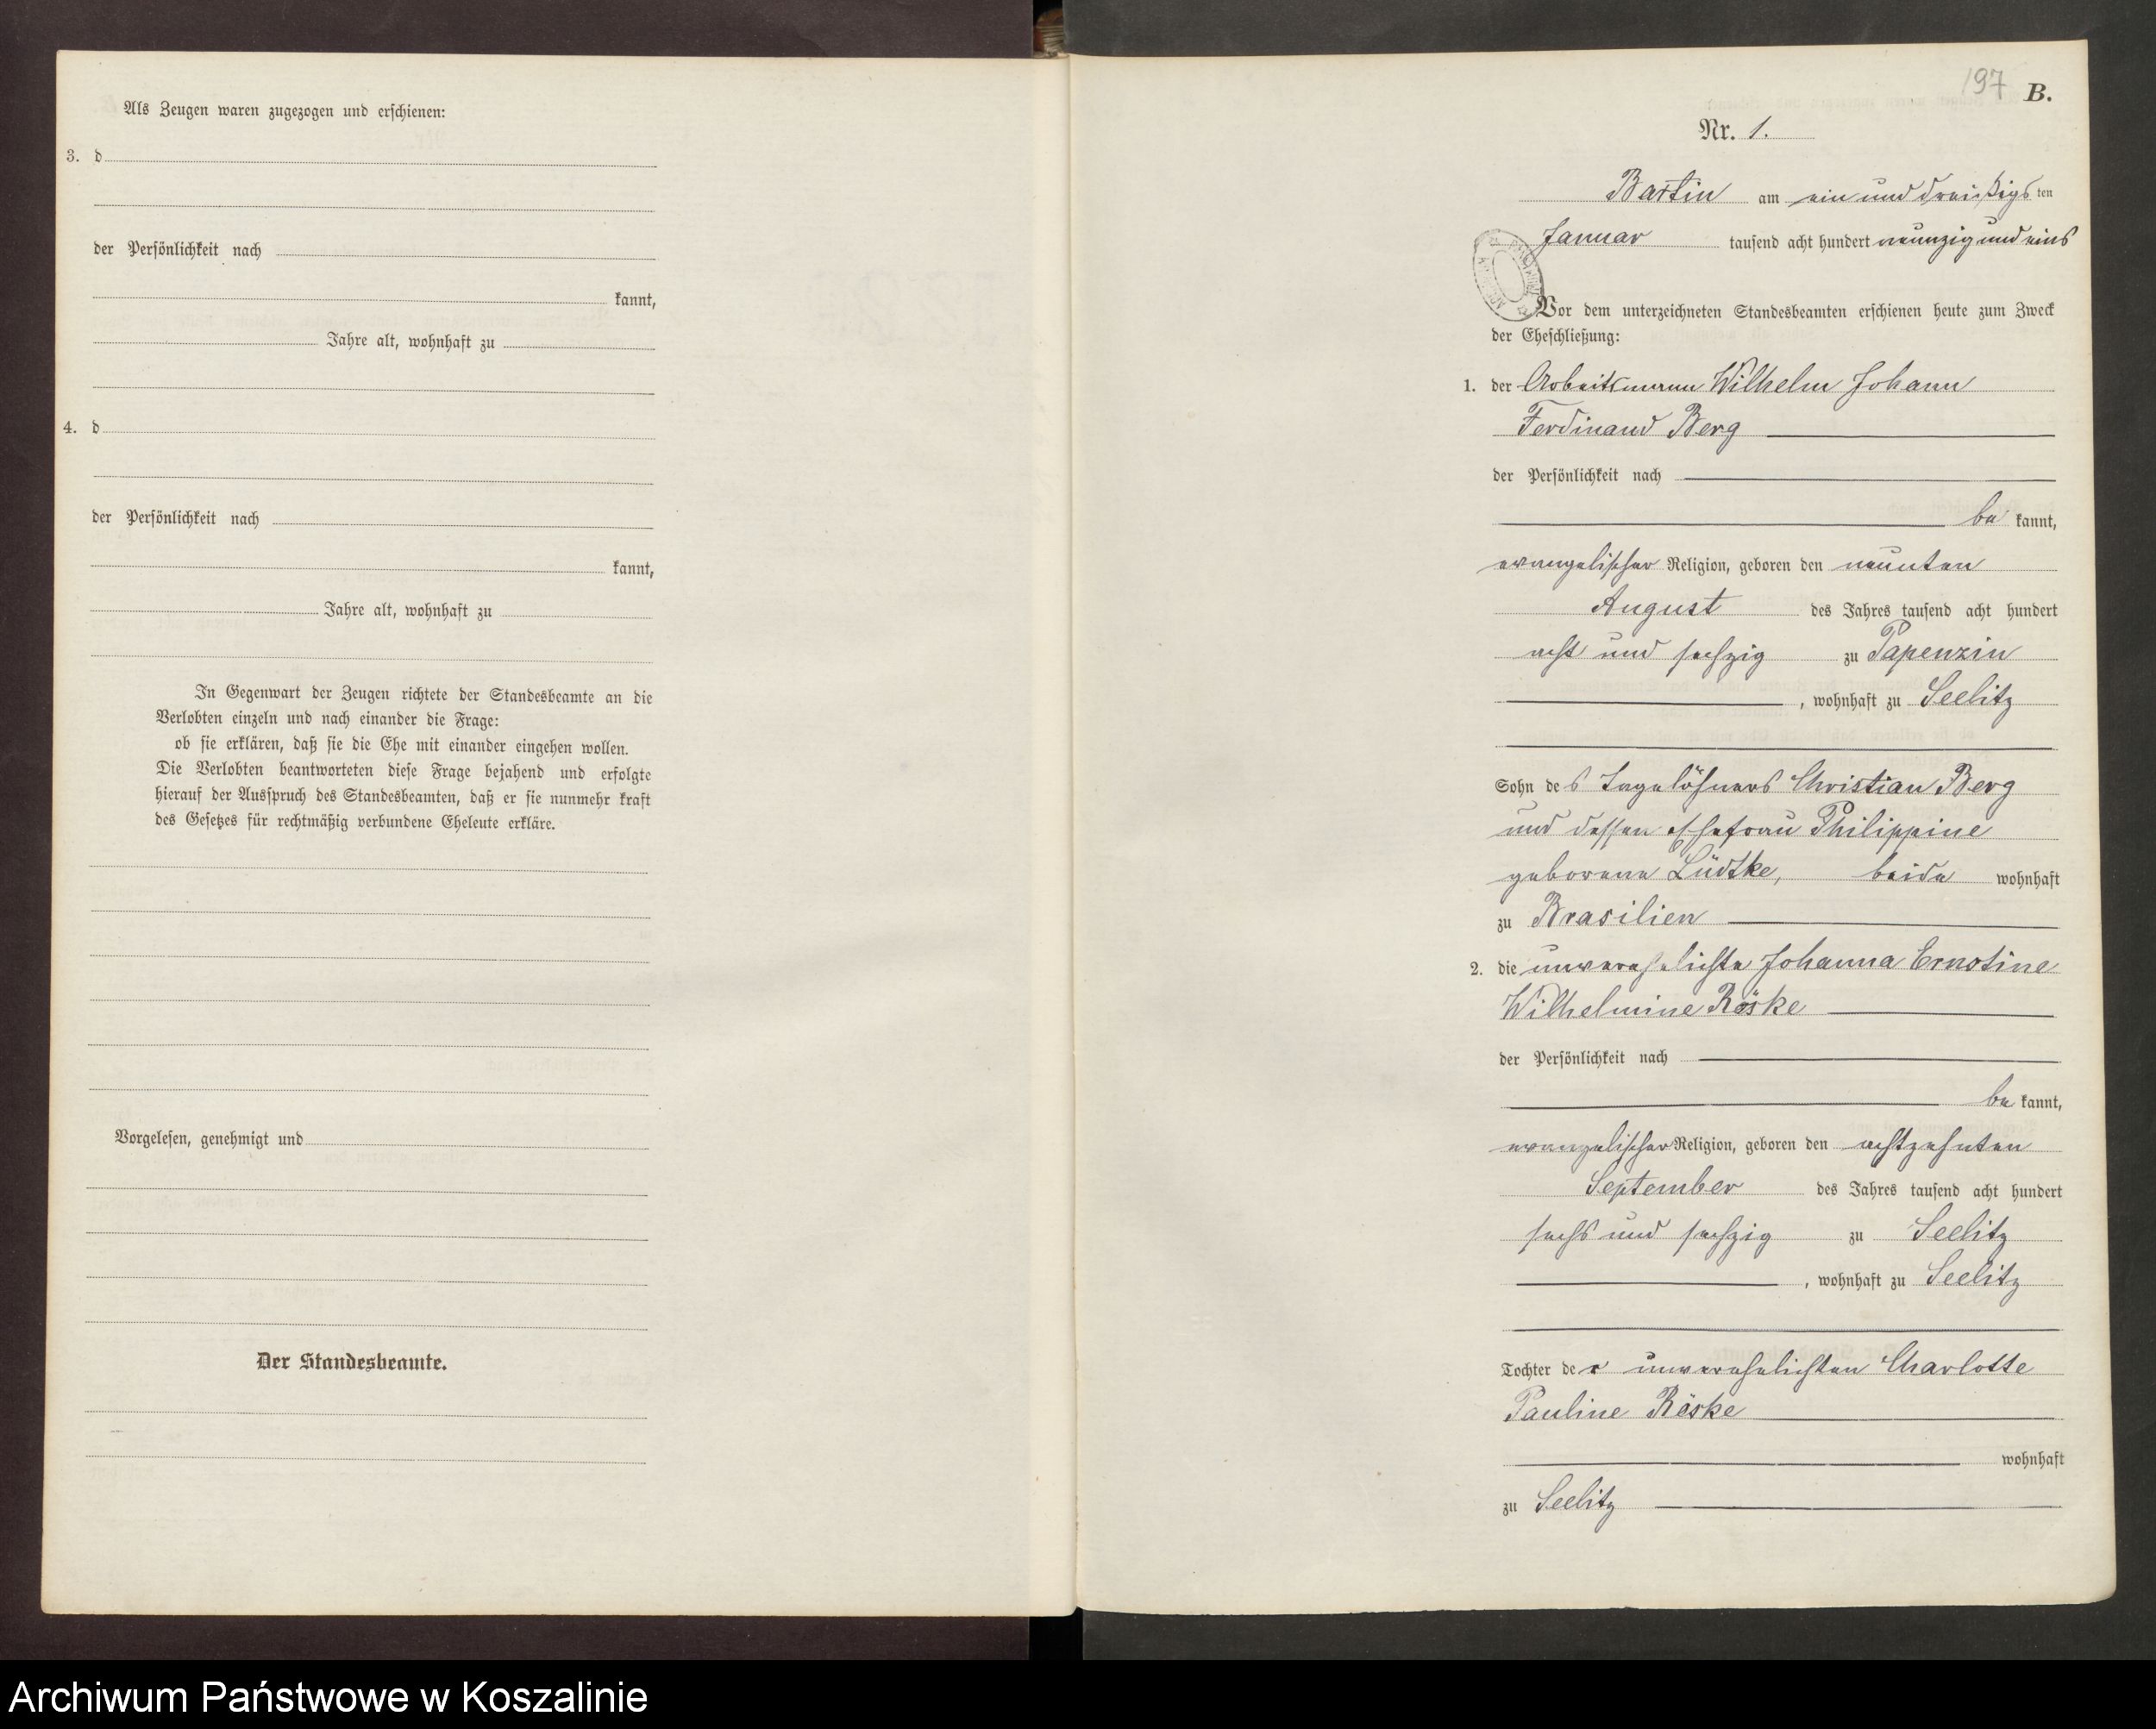 Als Zeugen waren zugezogen und erschienen:
3. d
der Persönlichkeit nach
kannt,
Jahre alt, wohnhaft zu
4. d
der Persönlichkeit nach
kannt,
Jahre alt, wohnhaft zu
In Gegenwart der Zeugen richtete der Standesbeamte an die
Verlobten einzeln und nach einander die Frage:
ob sie erklären, daß sie die Ehe mit einander eingehen wollen.
Die Verlobten beantworteten diese Frage bejahend und erfolgte
hierauf der Ausspruch des Standesbeamten, daß er sie nunmehr kraft
des Gesetzes für rechtmäßig verbundene Eheleute erkläre.
Vorgelesen, genehmigt und
Der Standesbeamte.
197 B.
Nr. 1.
Bartin am ein und dreißigsten
Januar tausend acht hundert neunzig und eins
Vor dem unterzeichneten Standesbeamten erschienen heute zum Zweck
der Eheschließung:
1. der Arbeitsmann Wilhelm Johann
Ferdinand Berg
der Persönlichkeit nach
be kannt,
evangelischer Religion, geboren den neunten
August des Jahres tausend acht hundert
acht und sechzig zu Papenzin
, wohnhaft zu Seelitz
Sohn des Tagelöhners Christian Berg
und dessen Ehefrau Philippine
geborene Lüdtke, beide wohnhaft
zu Brasilien
2. die unverehelichte Johanna Ernstine
Wilhelmine Röske
der Persönlichkeit nach
be kannt,
evangelischer Religion, geboren den achtzehnten
September des Jahres tausend acht hundert
sechs und sechzig zu Seelitz
, wohnhaft zu Seelitz
Tochter der unverehelichten Charlotte
Pauline Röske
wohnhaft
zu Seelitz
Archiwum Państwowe w Koszalinie